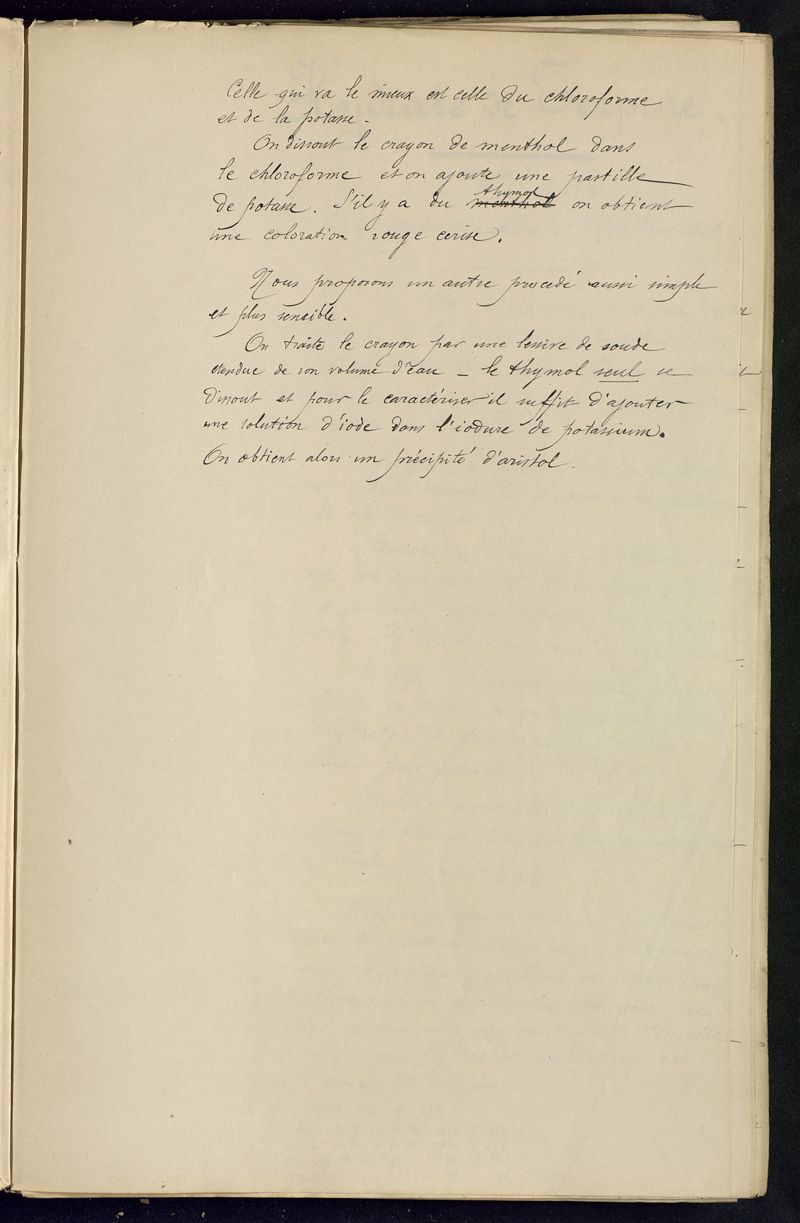 Celle qui va le mieux est celle du chloroforme
et de la potasse.
On dissout le crayon de menthol dans
le chloroforme et on ajoute une pastille
de potasse. S'il y a du thymol on obtient
une coloration rouge cerise.
Nous proposons un autre procédé aussi simple
et plus sensible.
On traite le crayon par une lessive de soude
étendue de son volume d'eau – le thymol seul se
dissout et pour le caractériser il suffit d'ajouter
une solution d'iode dans l'iodure de potassium.
On obtient alors un précipité d'aristol.